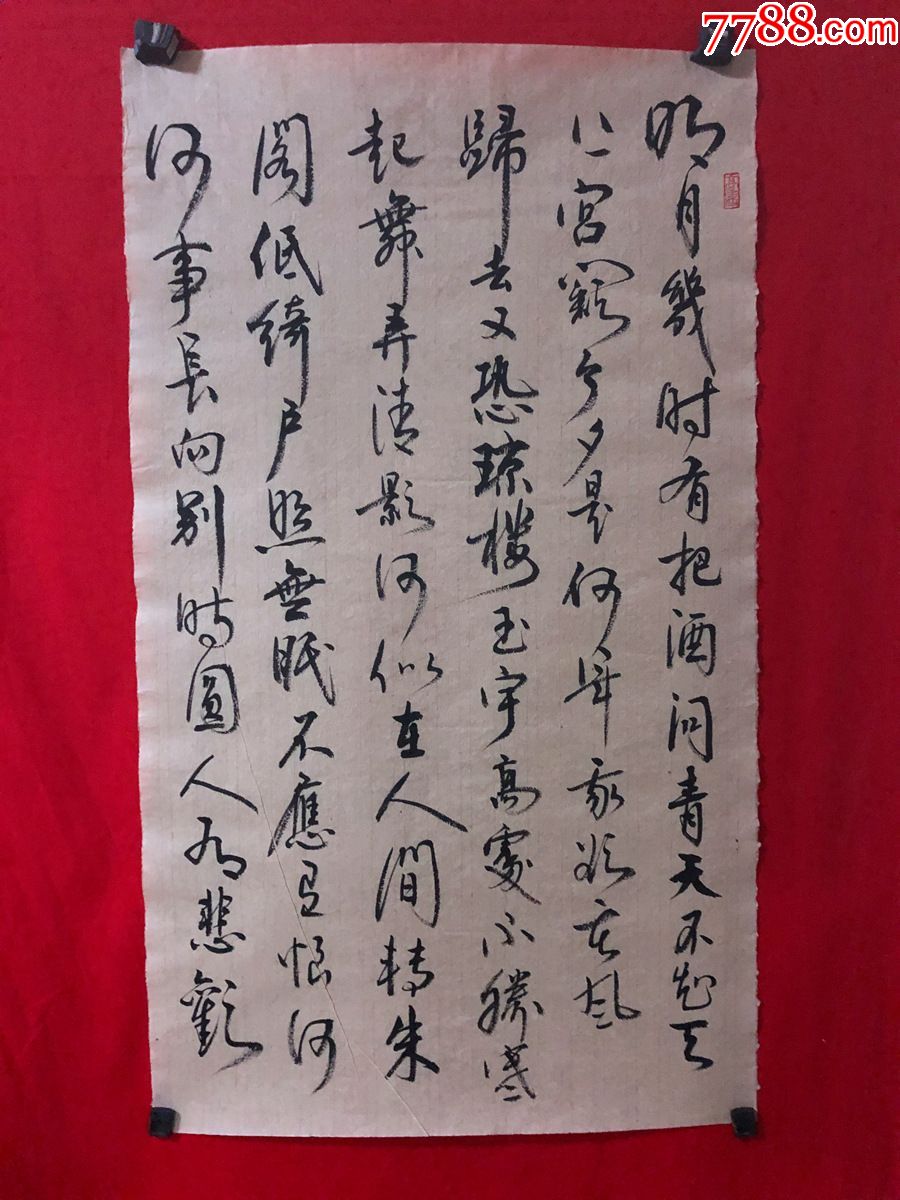 7788.com
明月幾时有把酒问青天不知天
上宮闕今夕是何年我欲乘风
歸去又恐琼楼玉宇高處不勝寒
起舞弄清影何似在人间轉朱
阁低綺户照無眠不應有恨何
何事長向别時圓人有悲歡